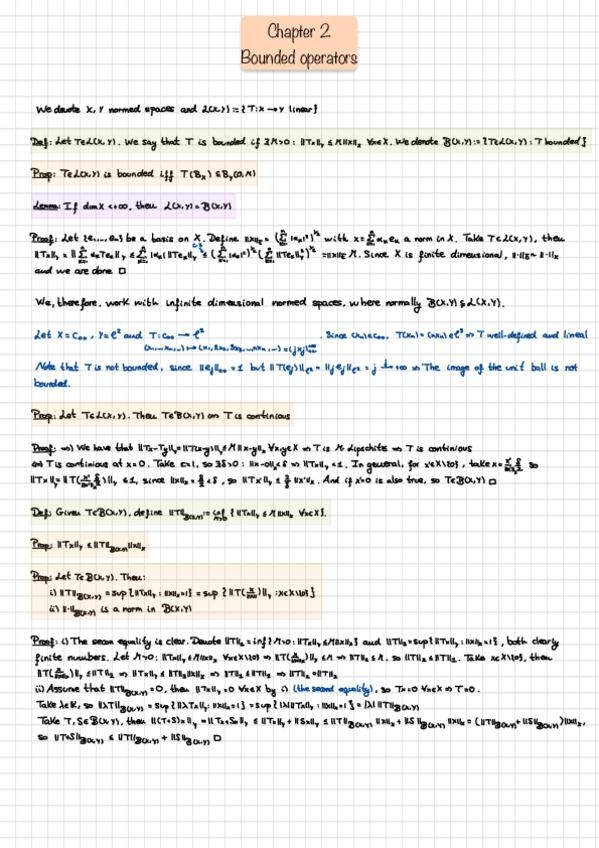 Chapter 2
Bounded operators
We denote X, Y normed spaces and L(X,Y):={T:X→Y linear}
Def: Let T∈L(X,Y). We say that T is bounded if ∃M>0: ||Tx||_Y ≤ M||x||_X ∀x∈X. We denote B(X,Y):={T∈L(X,Y): T bounded}
Prop: T∈L(X,Y) is bounded iff T(B_X)⊆B_Y(0,M)
Lemma: If dim X<+∞, then L(X,Y)=B(X,Y)
Proof: Let {e₁,...,eₙ} be a basis on X. Define ||x||_E = (∑|αₖ|²)^½ with x=∑αₖeₖ a norm in X. Take T∈L(X,Y), then
||Tx||_Y = ||∑αₖTeₖ||_Y ≤ ∑|αₖ| ||Teₖ||_Y ≤ (∑|αₖ|²)^½ (∑||Teₖ||²_Y)^½ = ||x||_E M. Since X is finite dimensional, ||·||_E ~ ||·||_X
and we are done □
We, therefore, work with infinite dimensional normed spaces, where normally B(X,Y)⊊L(X,Y).
Let X=c₀₀, Y=ℓ² and T: c₀₀ → ℓ² . Since (xₙ)∈c₀₀, T(xₙ)=(nxₙ)∈ℓ² ⇒ T well-defined and linear
(x₁,x₂,...,xₙ,...) ↦ (x₁,2x₂,3x₃,...,nxₙ,...) = (jxⱼ)
Note that T is not bounded, since ||eⱼ||_c₀₀=1 but ||T(eⱼ)||_ℓ² = ||jeⱼ||_ℓ² = j → +∞ ⇒ The image of the unit ball is not
bounded.
Prop: Let T∈L(X,Y). Then T∈B(X,Y) ⇔ T is continious
Proof: ⇒) We have that ||Tx-Ty||_Y=||T(x-y)||_Y ≤ M||x-y||_X ∀x,y∈X ⇒ T is M-Lipschitz ⇒ T is continious
⇐) T is continious at x=0. Take ε=1, so ∃δ>0: ||x-0||_X<δ ⇒ ||Tx||_Y<1. In general, for x'∈X\{0}, take x= x'/||x'||_X δ/2 so
||Tx||_Y = ||T(x'/||x'||_X δ/2)||_Y ≤ 1, since ||x||_X = δ/2 < δ, so ||Tx'||_Y ≤ 2/δ ||x'||_X. And if x'=0 is also true, so T∈B(X,Y) □
Def: Given T∈B(X,Y), define ||T||_B(X,Y) := inf_{M>0} {||Tx||_Y ≤ M||x||_X ∀x∈X}.
Prop: ||Tx||_Y ≤ ||T||_B(X,Y) ||x||_X
Prop: Let T∈B(X,Y). Then:
i) ||T||_B(X,Y) = sup{||Tx||_Y : ||x||_X=1} = sup{||T(x/||x||)||_Y : x∈X\{0}}
ii) ||·||_B(X,Y) is a norm in B(X,Y)
Proof: i) The secon equality is clear. Denote ||T||₁=inf{M>0: ||Tx||_Y ≤ M||x||_X} and ||T||₂=sup{||Tx||_Y : ||x||_X=1}, both clearly
finite numbers. Let M>0: ||Tx||_Y ≤ M||x||_X ∀x∈X\{0} ⇒ ||T(x/||x||_X)||_Y ≤ M ⇒ ||T||₂ ≤ M, so ||T||₂ ≤ ||T||₁. Take x∈X\{0}, then
||T(x/||x||_X)||_Y ≤ ||T||₂ ⇒ ||Tx||_Y ≤ ||T||₂||x||_X ⇒ ||T||₁ ≤ ||T||₂ ⇒ ||T||₁=||T||₂
ii) Assume that ||T||_B(X,Y)=0, then ||Tx||_Y=0 ∀x∈X by i) (the second equality), so Tx=0 ∀x∈X ⇒ T=0.
Take λ∈K, so ||λT||_B(X,Y) = sup{||λTx||_Y : ||x||_X=1} = sup{|λ| ||Tx||_Y : ||x||_X=1} = |λ| ||T||_B(X,Y)
Take T,S∈B(X,Y), then ||(T+S)x||_Y = ||Tx+Sx||_Y ≤ ||Tx||_Y + ||Sx||_Y ≤ ||T||_B(X,Y) ||x||_X + ||S||_B(X,Y) ||x||_X = (||T||_B(X,Y) + ||S||_B(X,Y))||x||_X,
so ||T+S||_B(X,Y) ≤ ||T||_B(X,Y) + ||S||_B(X,Y) □